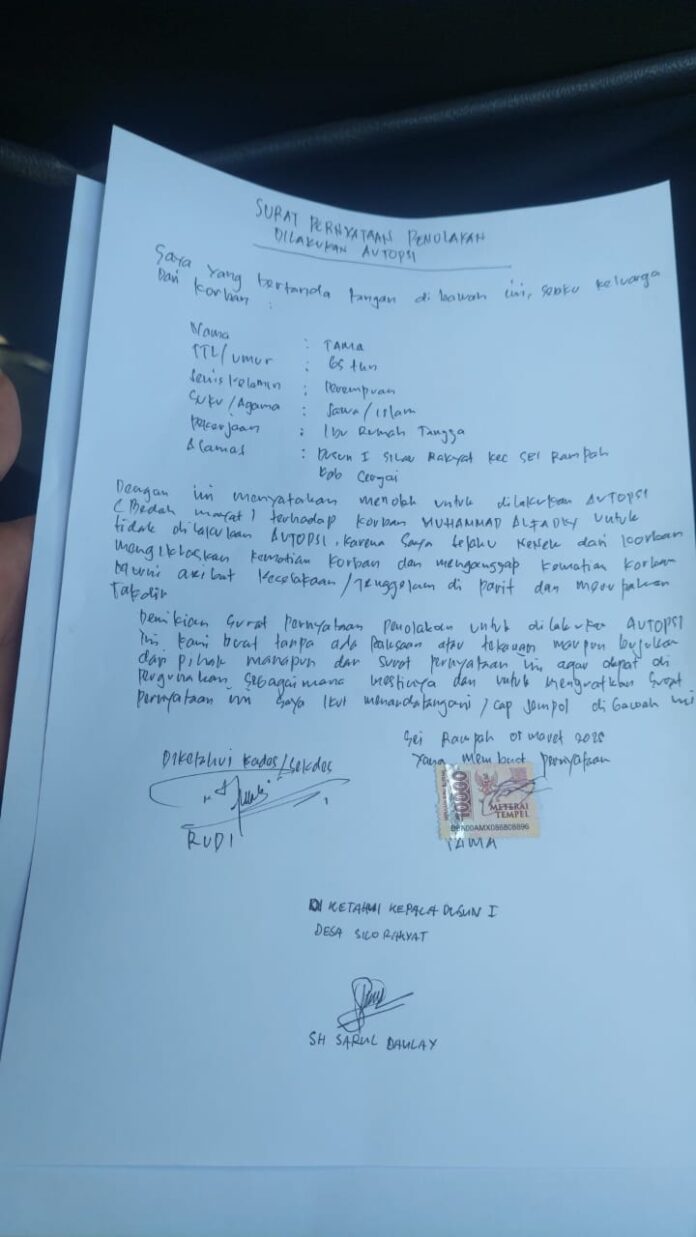 SURAT PERNYATAAN PENOLAKAN
DILAKUKAN AUTOPSI
Saya yang bertanda tangan di bawah ini, sebku keluarga
Dari korban :
Nama : TAMA
TTL/Umur : 65 thn
Jenis Kelamin : Perempuan
Suku/Agama : Jawa/Islam
Pekerjaan : Ibu Rumah Tangga
Alamat : Dusun I Silau Rakyat Kec SEI Rampah
Kab Sergai
Dengan ini menyatakan menolak untuk dilakukan AUTOPSI
(Bedah mayat) terhadap korban MUHAMMAD ALFADKY untuk
tidak dilakukan AUTOPSI, karena saya selaku Nenek dari korban
mengikhlaskan kematian korban dan menganggap kematian korban
Murni akibat kecelakaan/tenggelam di parit dan merupakan
Takdir
Demikian surat pernyataan penolakan untuk dilakukan AUTOPSI
ini kami buat tanpa ada paksaan atau tekanan maupun bujukan
dari pihak manapun dan surat pernyataan ini agar dapat di
pergunakan sebagaimana mestinya dan untuk menguatkan surat
pernyataan ini saya ikut menandatangani/cap jempol di bawah ini
Sei Rampah 01 maret 2025
Diketahui Kades/Sekdes
Yang membuat pernyataan
10000
METERAI
TEMPEL
RUDI
TAMA
DI KETAHUI KEPALA DUSUN I
DESA SILO RAKYAT
SH SARUL DAULAY